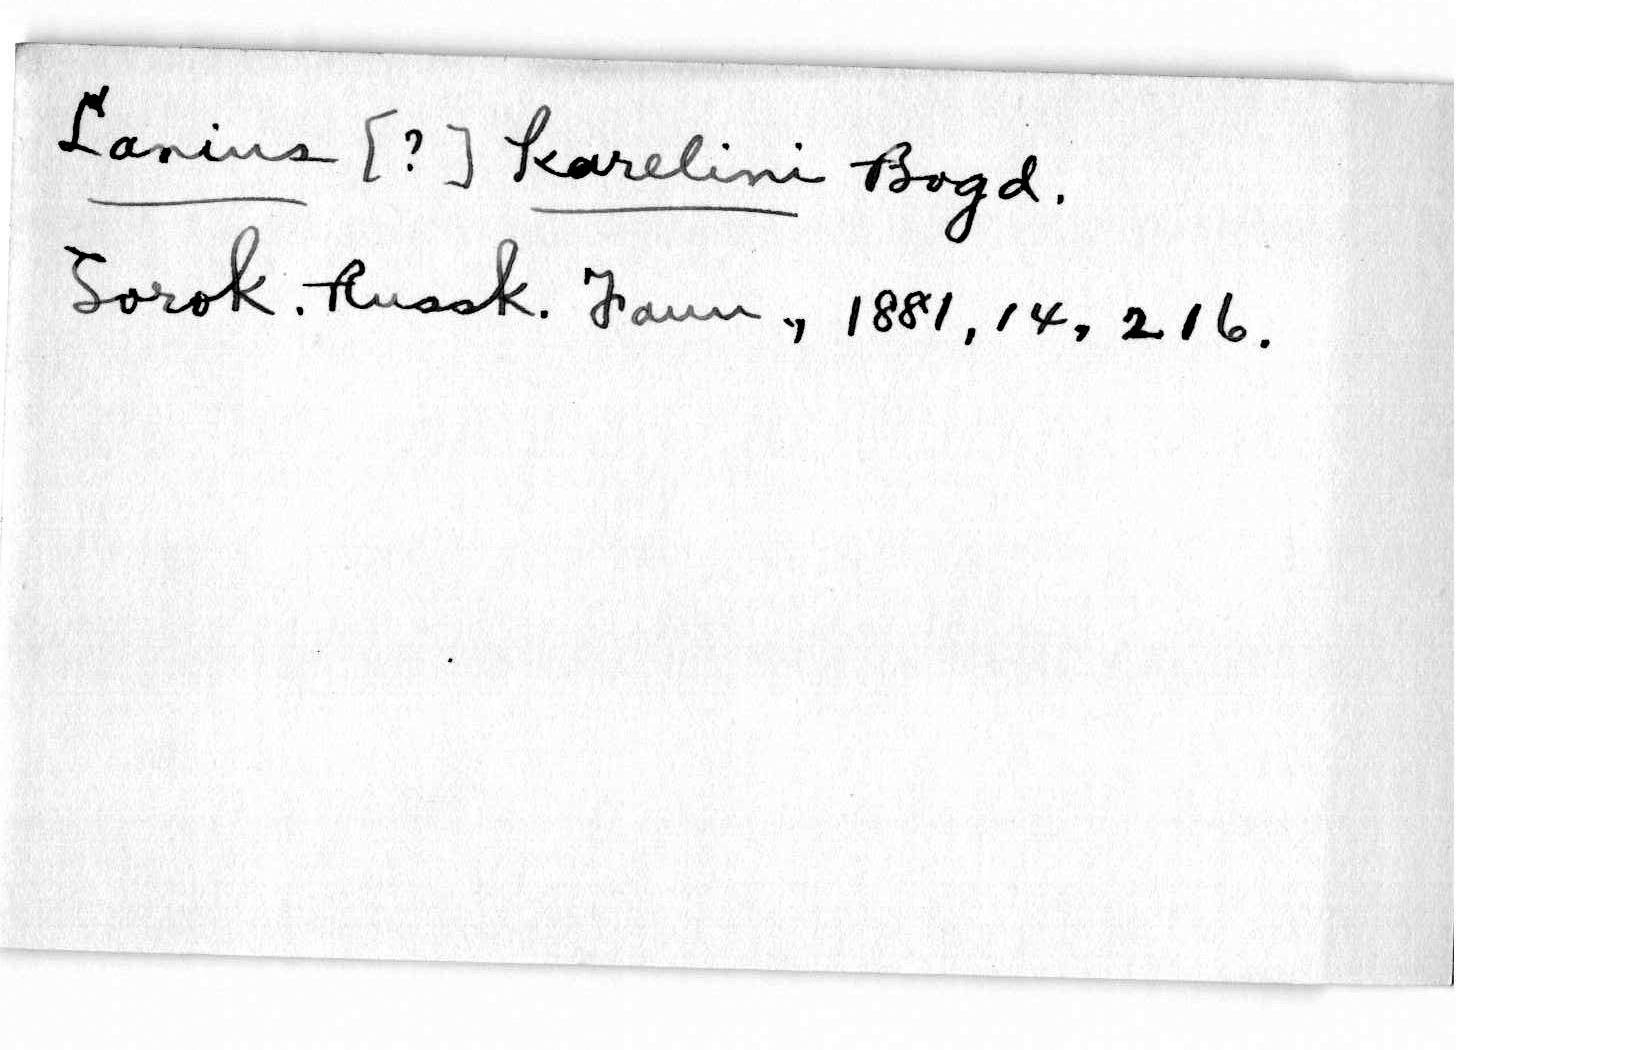 Lanius [?] karelini Bogd.
Sorok. Russk. Faun., 1881, 14, 216.